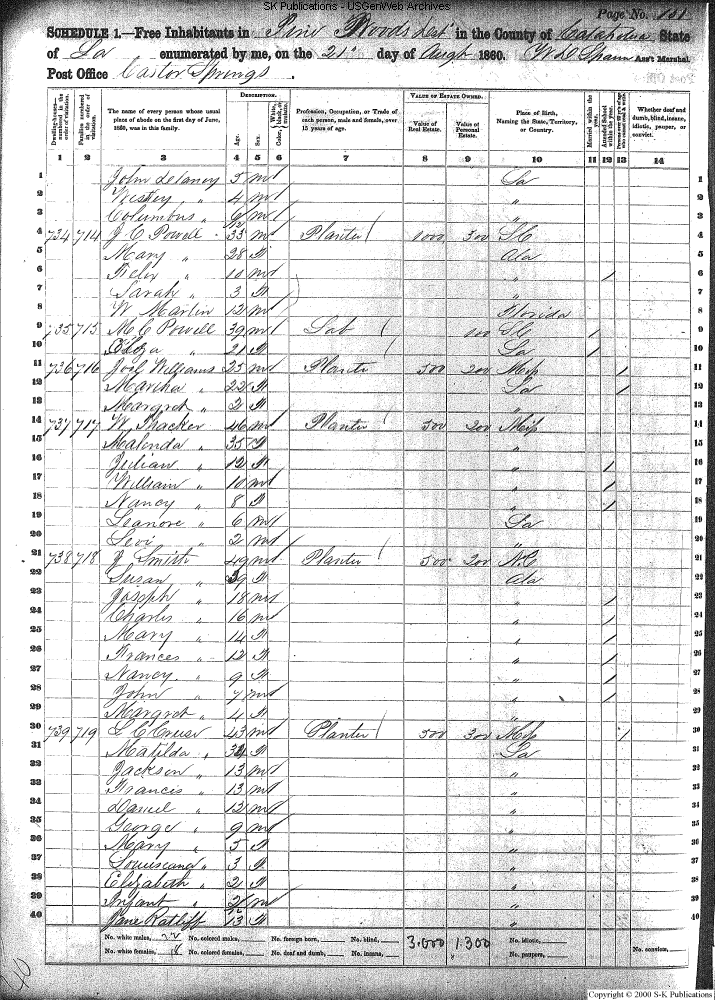 SK Publications - USGenWeb Archives
Page No. 151
SCHEDULE 1.—Free Inhabitants in Piny Woods Dist in the County of Catahoula State
of La enumerated by me, on the 21st day of Augt 1860. W L Spann Ass't Marshal.
Post Office Castor Springs.
DESCRIPTION. VALUE OF ESTATE OWNED.
Dwelling-houses—numbered in the order of visitation. Families numbered in the order of visitation. The name of every person whose usual place of abode on the first day of June, 1860, was in this family. Age. Sex. Color, White, black, or mulatto. Profession, Occupation, or Trade of each person, male and female, over 15 years of age. Value of Real Estate. Value of Personal Estate. Place of Birth, Naming the State, Territory, or Country. Married within the year. Attended School within the year. Persons over 20 y'rs of age who cannot read & write. Whether deaf and dumb, blind, insane, idiotic, pauper, or convict.
1 2 3 4 5 6 7 8 9 10 11 12 13 14
1 John Delaney 5 m La 1
2 Westey " 4 m " 2
3 Columbus " 6/12 m " 3
4 734 714 J C Powell 33 m Planter 1000 300 SC 4
5 Mary " 28 f Ala 5
6 Felix " 10 m " / 6
7 Sarah " 3 f " 7
8 W Martin 12 m Florida 8
9 735 715 M C Powell 39 m Lab 100 SC / 9
10 Eliza " 21 f La / 10
11 736 716 Joel Williams 25 m Planter 500 200 Miss / 11
12 Martha " 22 f La / 12
13 Margret " 2 f " 13
14 737 717 W Thacker 46 m Planter 500 200 Miss 14
15 Malenda " 35 f " 15
16 Julian " 12 f " / 16
17 William " 10 m " / 17
18 Nancy " 8 f " / 18
19 Leanore " 6 m La 19
20 Levi " 2 m " 20
21 738 718 J Smith 49 m Planter 500 200 N.C 21
22 Susan " 39 f Ala 22
23 Joseph " 18 m " / 23
24 Charles " 16 m " / 24
25 Mary " 14 f " / 25
26 Frances " 12 f " / 26
27 Nancy " 9 f " / 27
28 John " 7 m " / 28
29 Margret " 4 f " 29
30 739 719 L C Creuse 43 m Planter 500 300 Miss / 30
31 Matilda " 34 f La 31
32 Jackson " 13 m " 32
33 Francis " 13 m " 33
34 Daniel " 12 m " 34
35 George " 9 m " 35
36 Mary " 5 f " 36
37 Louiseana " 3 f " 37
38 Elizabeth " 2 f " 38
39 Infant " 2/12 m " 39
40 Jane Ratliff 13 f " 40
No. white males, 22 No. colored males, No. foreign born, No. blind, 3.000 1.300 No. idiotic, No. convicts,
No. white females, 18 No. colored females, No. deaf and dumb, No. insane, No. paupers,
40
Copyright © 2000 S-K Publications